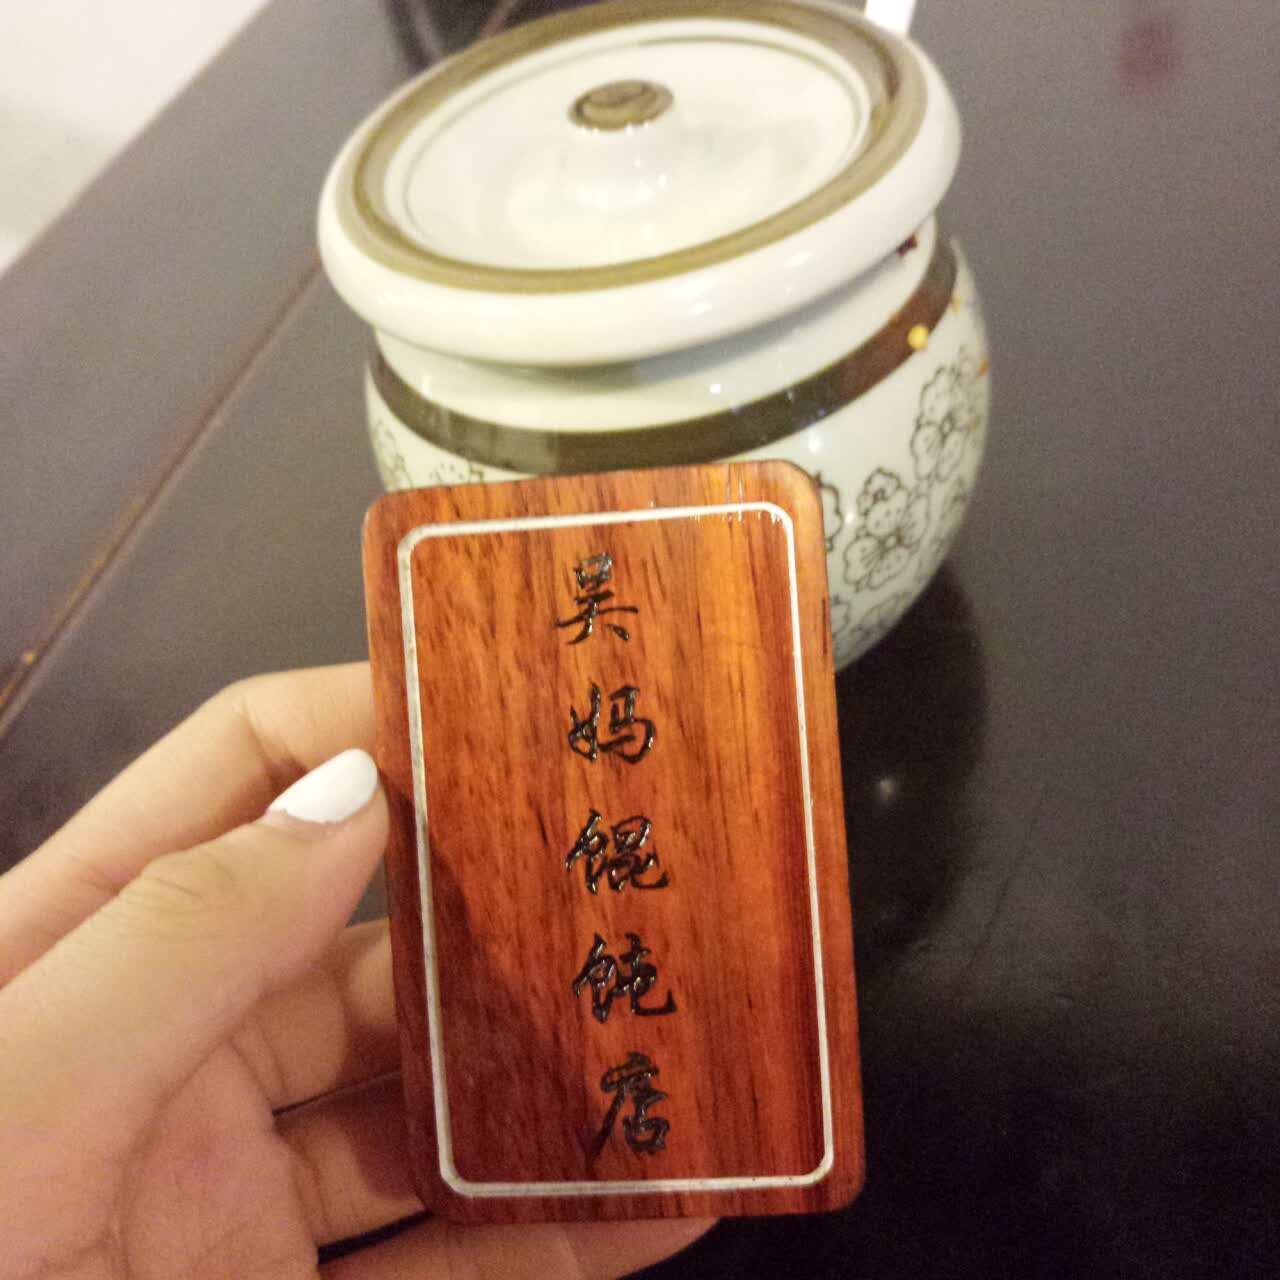 吴妈馄饨店